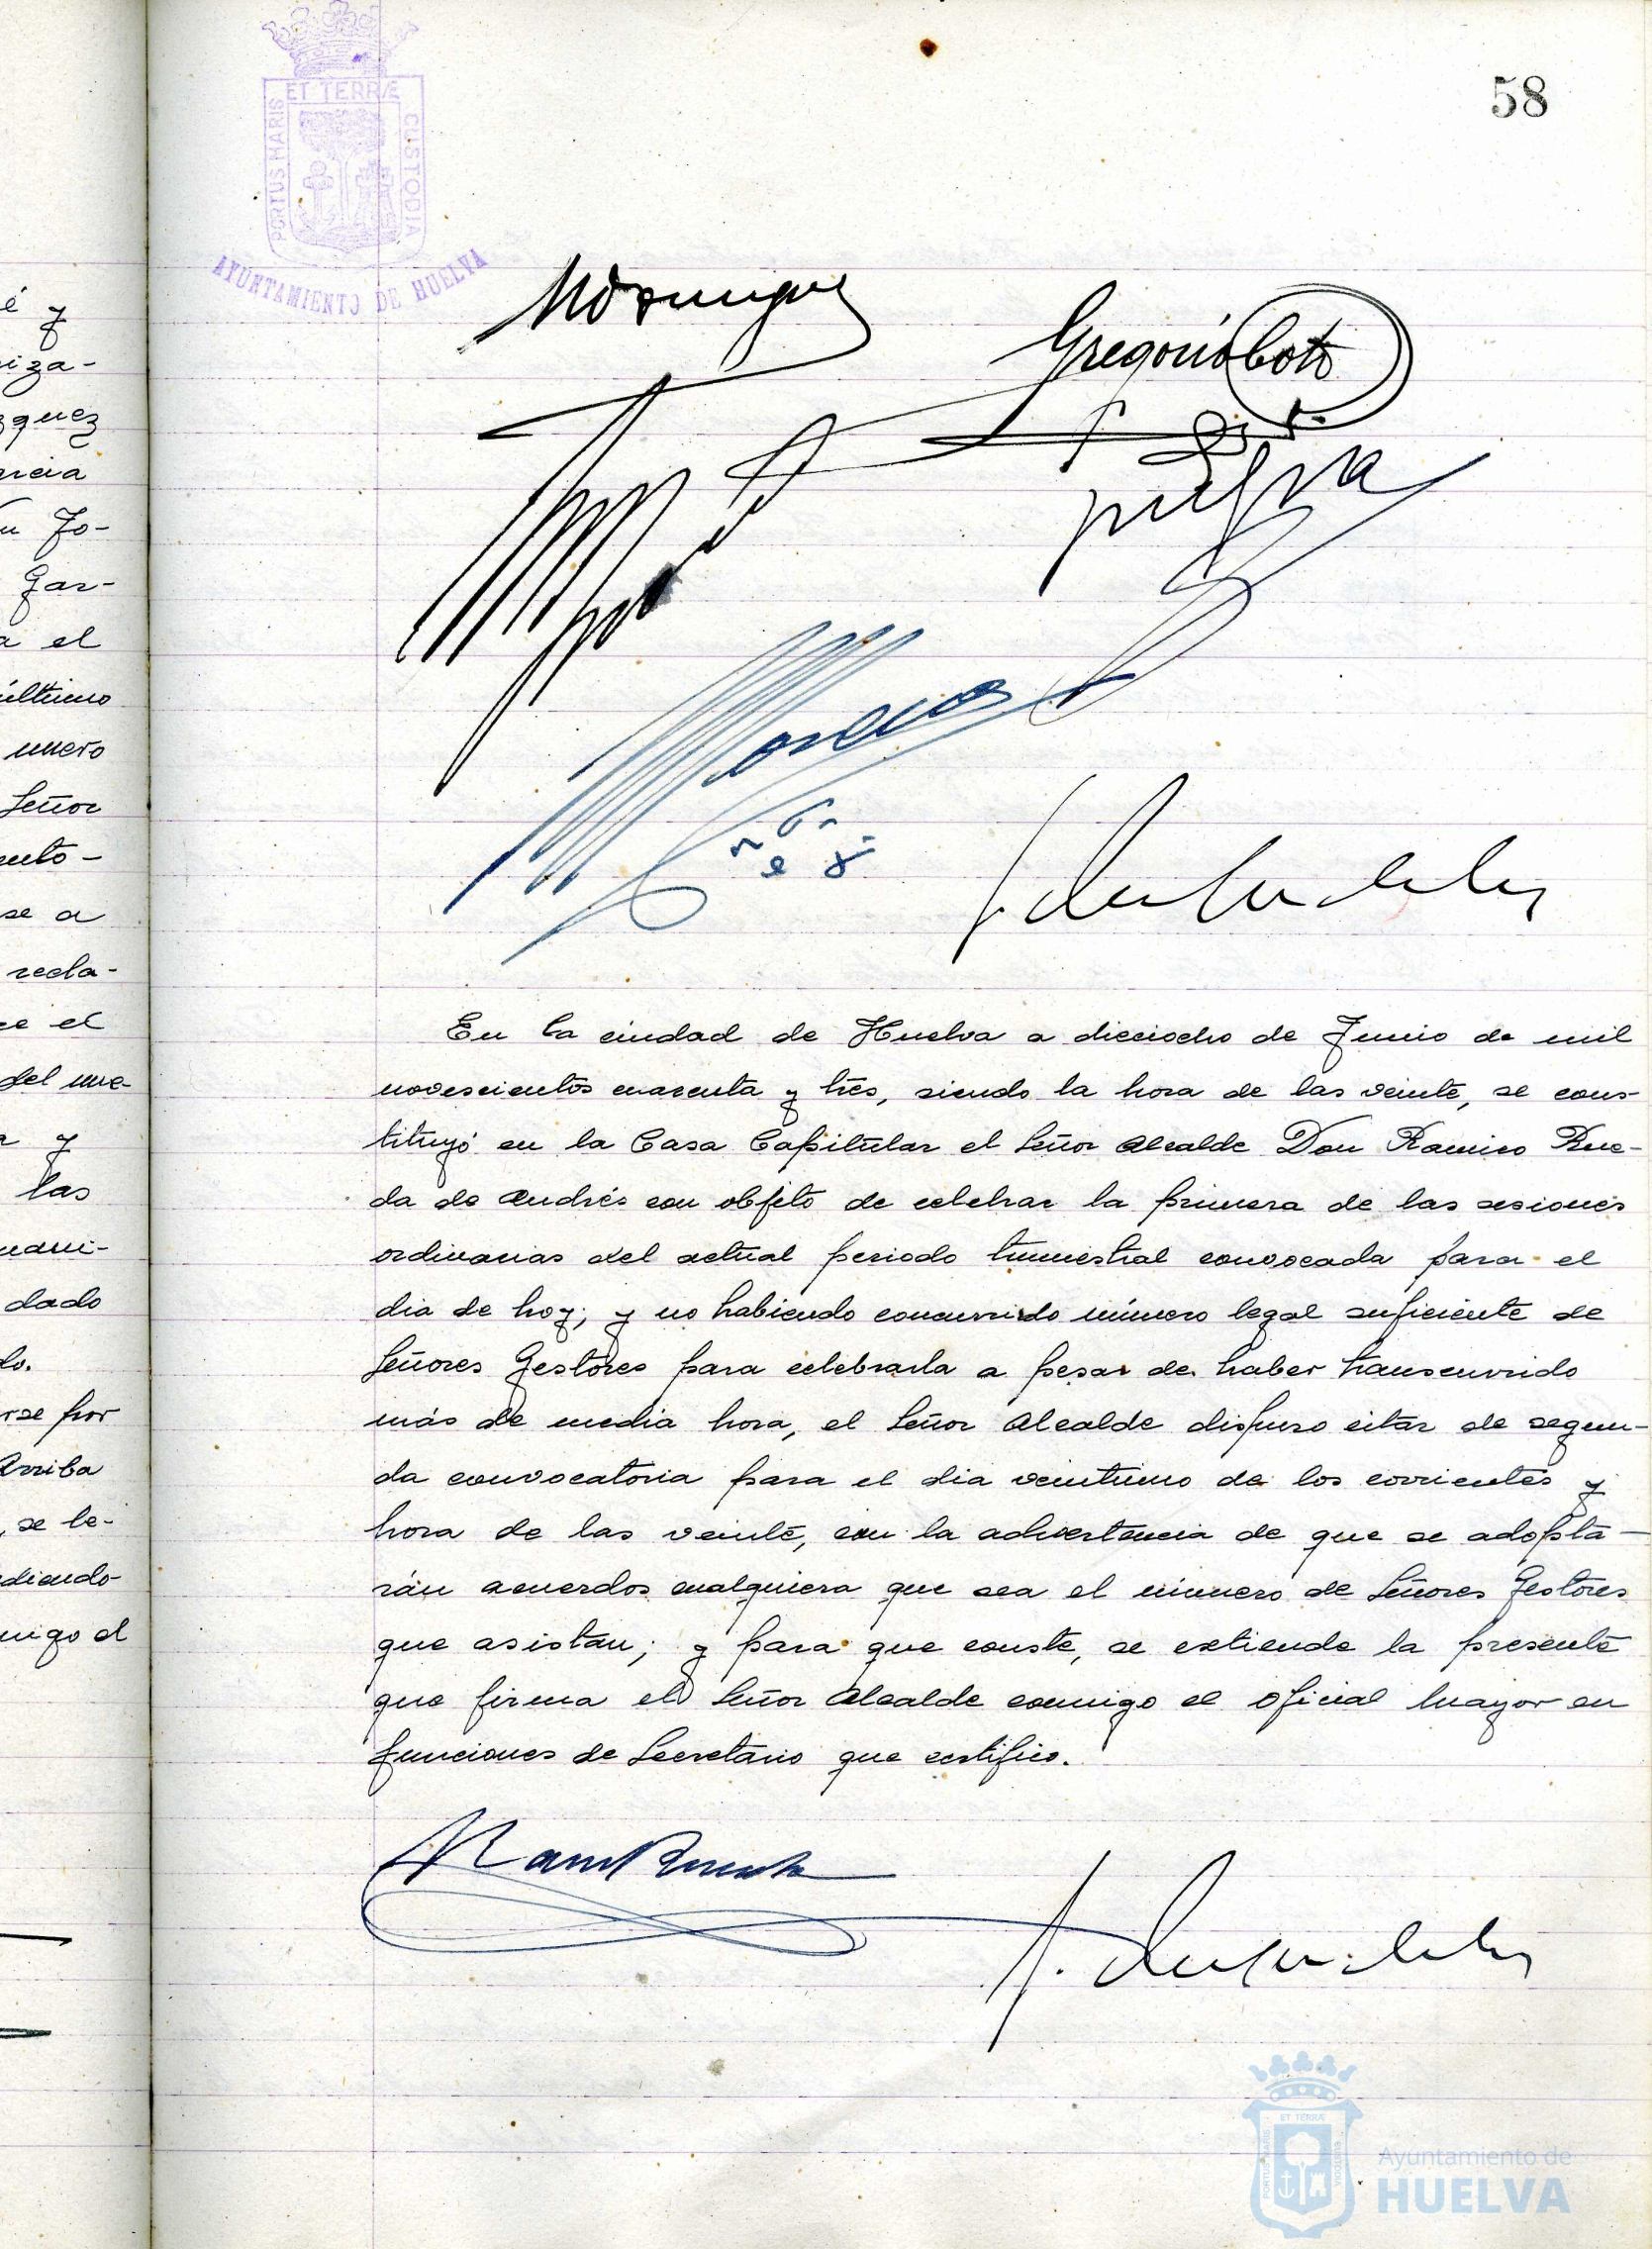 58
ET TERRÆ
PORTUS MARIS
CUSTODIA
AYUNTAMIENTO DE HUELVA
Gregorio Coto
é y
iza-
zquez
arcia
Jo-
Gar-
a el
último
Señor
se a
recla-
ce el
y
las
dado
por
Arriba
, se le-
En la ciudad de Huelva a dieciocho de Junio de mil
novescientos cuarenta y tres, siendo la hora de las veinte, se cons-
tituyó en la Casa Capitular el Señor Alcalde Don Ramiro Rue-
da de Andrés con objeto de celebrar la primera de las sesiones
ordinarias del actual periodo trimestral convocada para el
dia de hoy; y no habiendo concurrido número legal suficiente de
Señores Gestores para celebrarla a pesar de haber transcurrido
más de media hora, el Señor Alcalde dispuso citar de segun-
da convocatoria para el dia veintiuno de los corrientes y
hora de las veinte, con la advertencia de que se adopta-
rán acuerdos cualquiera que sea el número de Señores Gestores
que asistan; y para que conste, se extiende la presente
que firma el Señor Alcalde conmigo el oficial mayor en
funciones de Secretario que certifico.
Ayuntamiento de
HUELVA